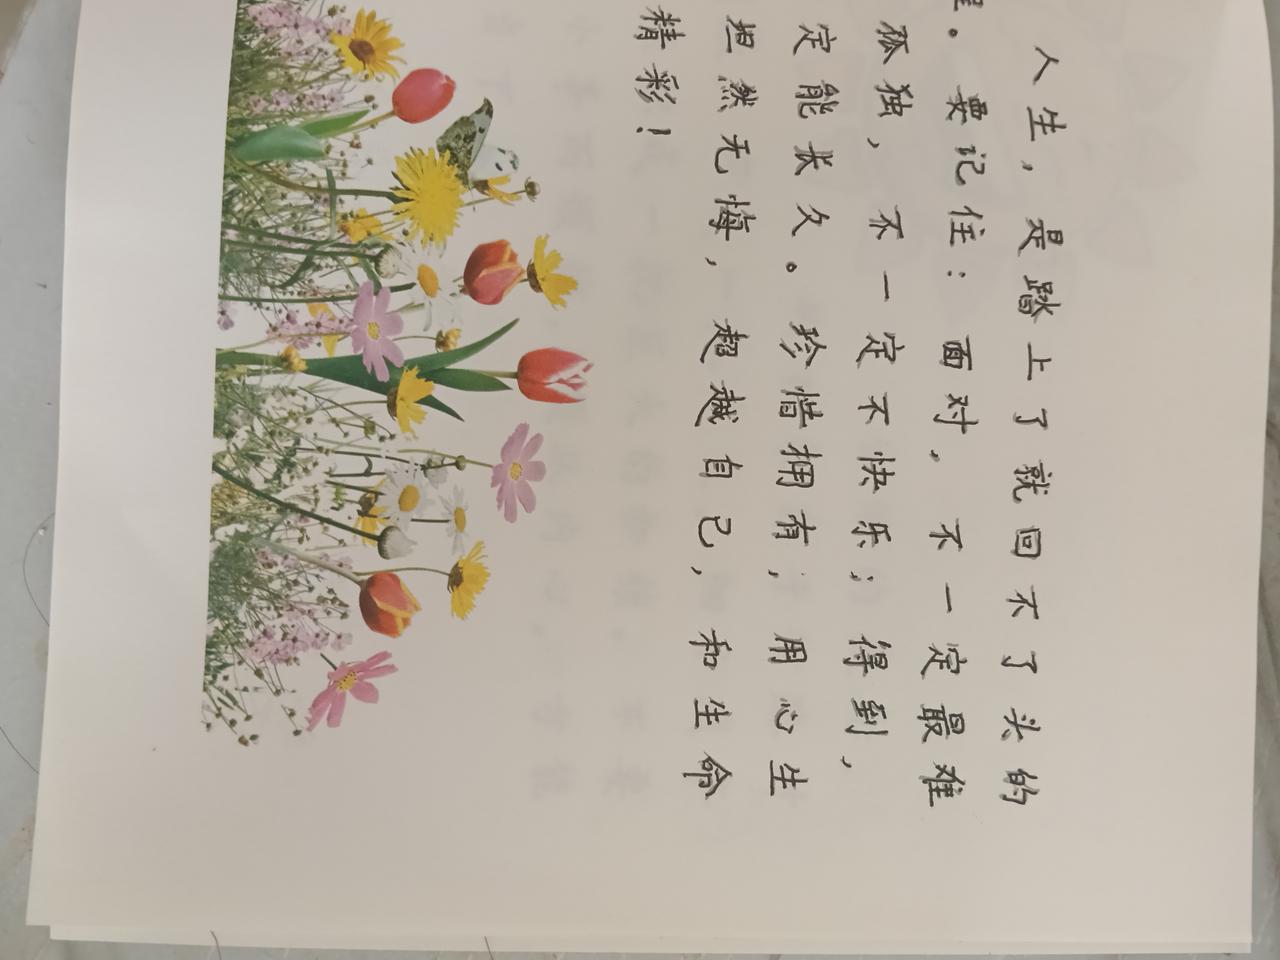 人生,是踏上了就回不了头的
。要记住:面对,不一定最难
孤独,不一定不快乐;得到,
定能长久。珍惜拥有;用心生
坦然无悔,超越自己,和生命
精彩!